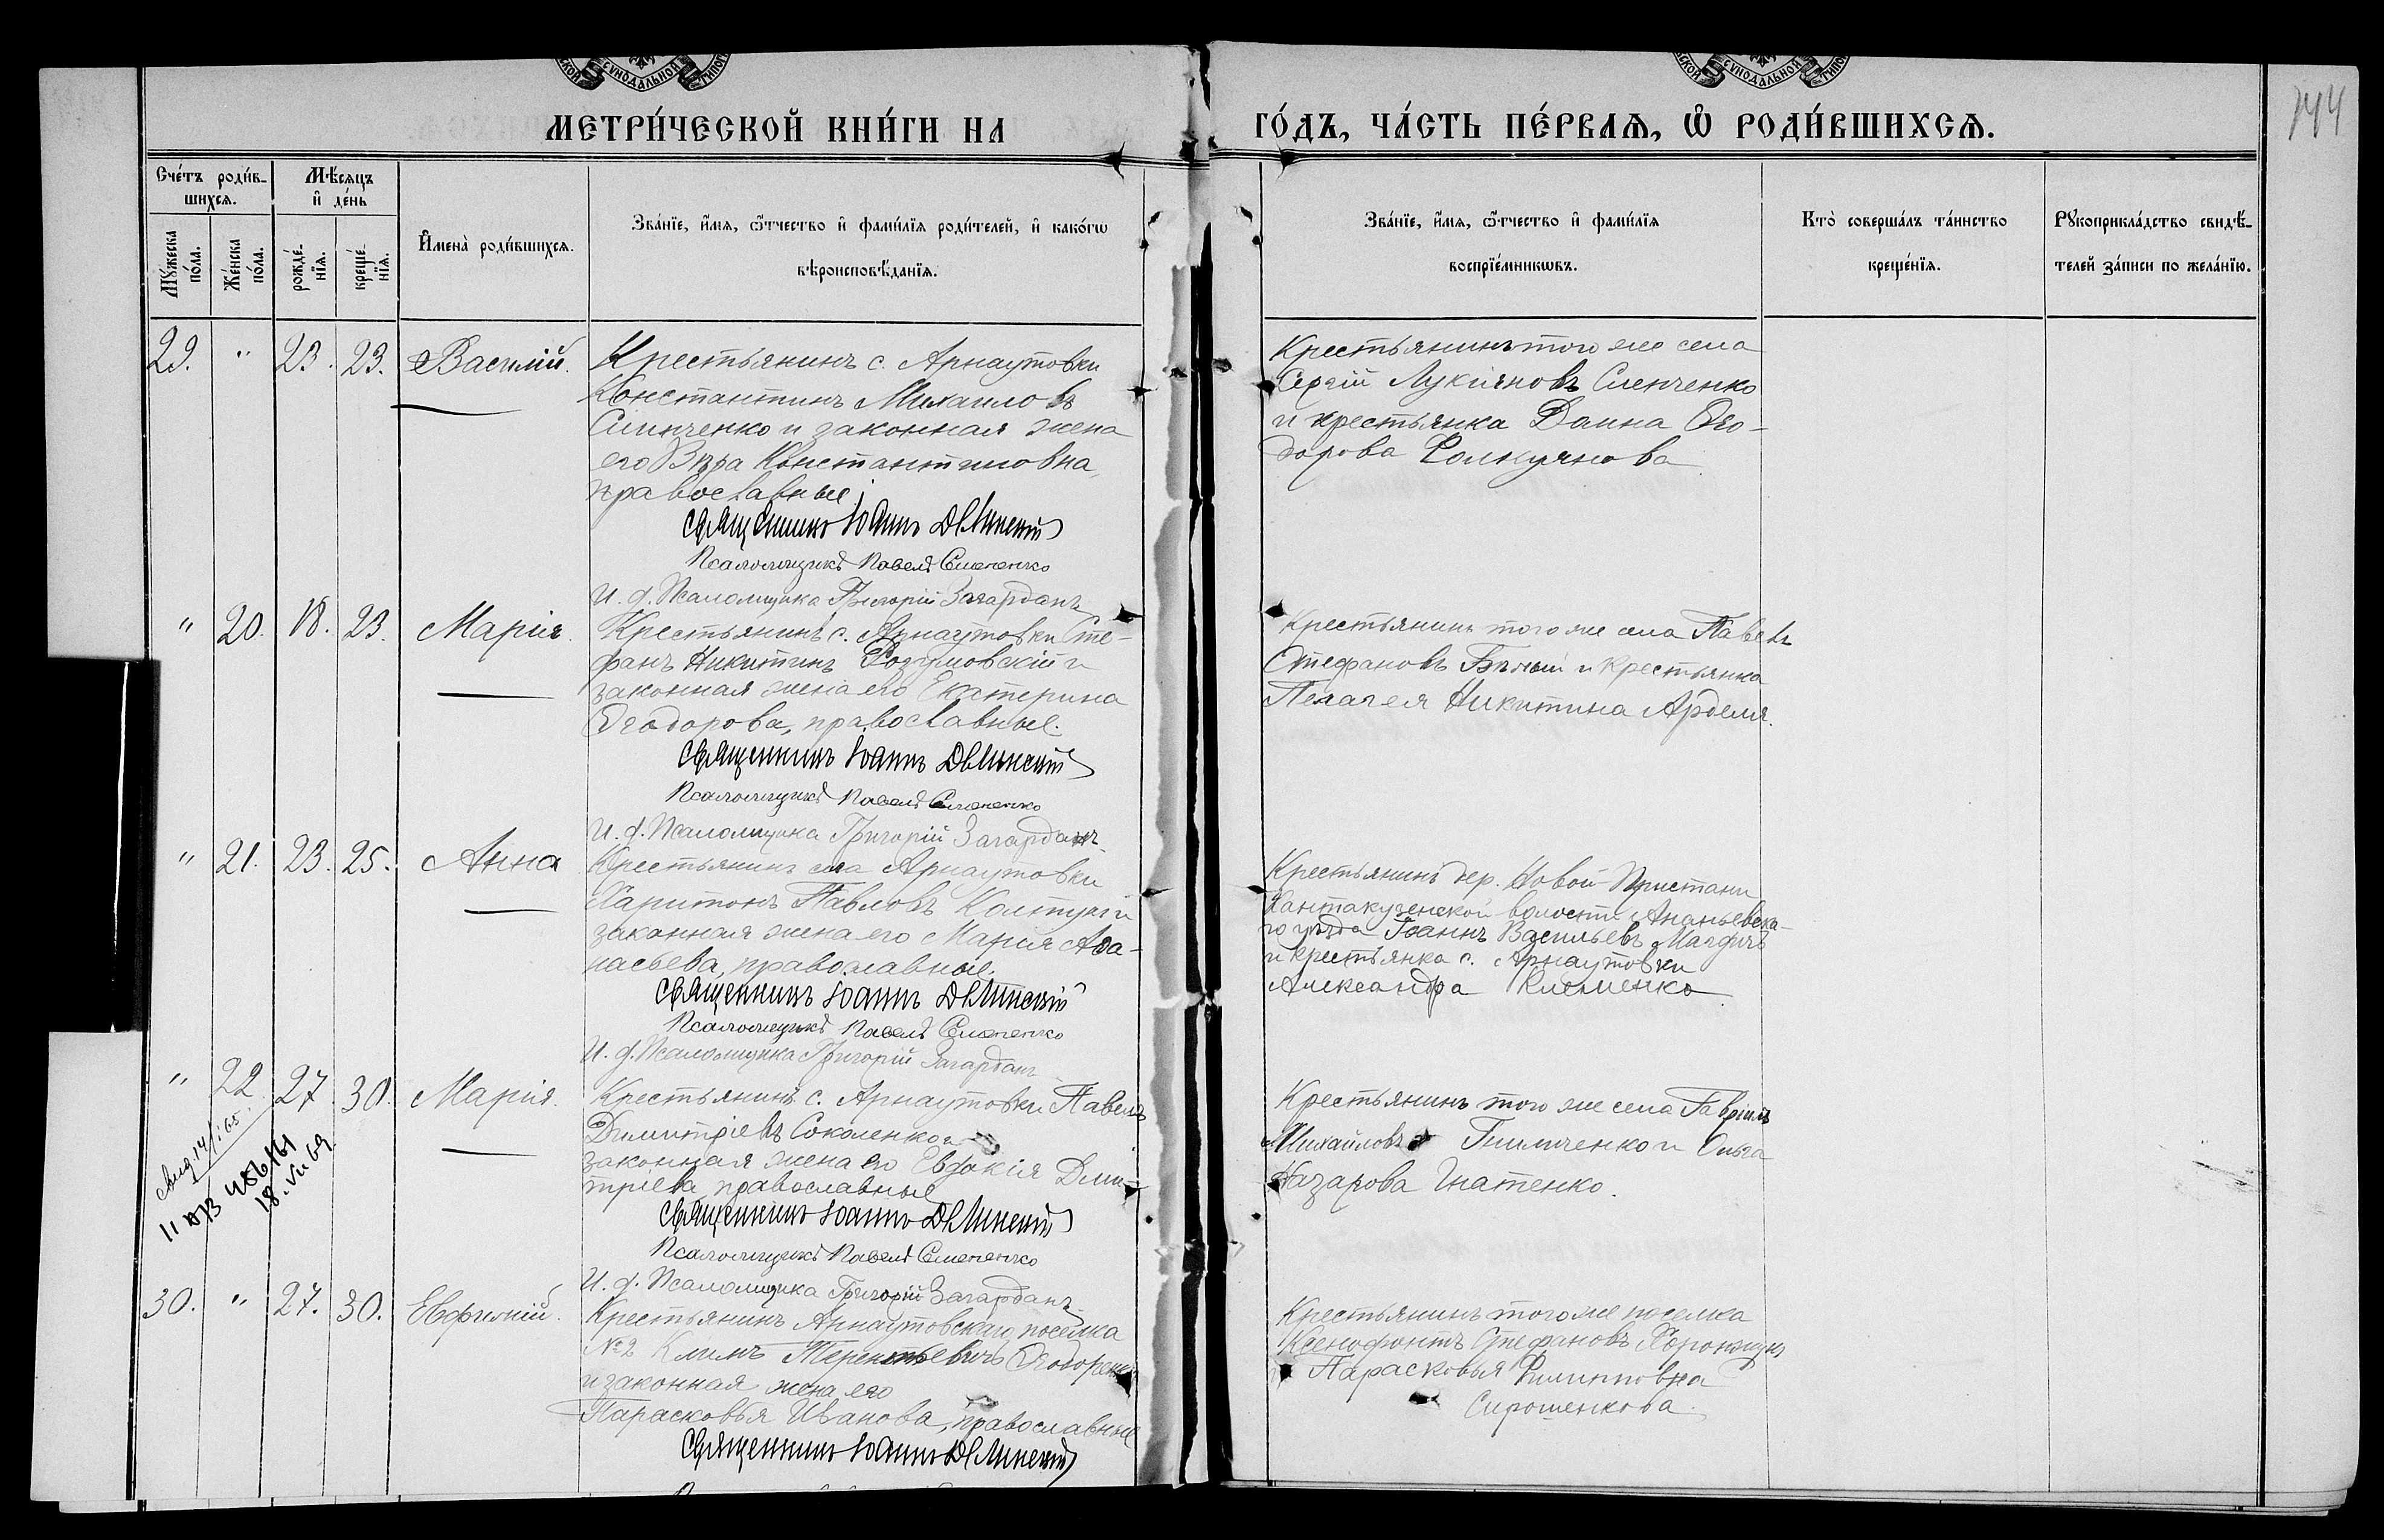 СУНОДАЛЬНОЙ
СУНОДАЛЬНОЙ
МЕТРИ́ЧЕСКОЙ КНИ́ГИ НА
ГО́ДЪ, ЧА́СТЬ ПЕ́РВАѦ, Ѽ РОДИ́ВШИХСѦ.
144
Сче́тъ роди́в-
шихсѧ.
Мѣ́сѧцъ
и҆ де́нь
Мꙋ́жеска
по́ла.
Же́нска
по́ла.
рожде́-
нїѧ.
креще́-
нїѧ.
И҆мена̀ роди́вшихсѧ.
Зва́нїе, и҆́мѧ, ѻ҆́тчество и҆ фами́лїѧ роди́телей, и҆ како́гѡ
вѣроисповѣ́данїѧ.
Зва́нїе, и҆́мѧ, ѻ҆́тчество и҆ фами́лїѧ
воспрїе́мникѡвъ.
Кто̀ соверша́лъ та́инство
креще́нїѧ.
Рꙋкоприкла́дство свидѣ́-
телей за́писи по жела́нїю.
29. " 23. 23. Василій.
Крестьянинъ с. Арнаутовки
Константинъ Михаиловъ
и законная жена
его Вѣра Константиновна,
православные.
Священникъ Іоаннъ Двлинскій
Псаломщикъ Павелъ Семененко
И. д. Псаломщика Григорій Загарданъ
Крестьянинъ того же села
Сергій Лукіяновъ
и крестьянка Домна Ѳео-
дорова
" 20. 18. 23. Марія.
Крестьянинъ с. Арнаутовки Сте-
фанъ Никитинъ Розумовскій и
законная жена его Екатерина
Ѳеодорова, православные.
Священникъ Іоаннъ Двлинскій
Псаломщикъ Павелъ Семененко
И. д. Псаломщика Григорій Загарданъ
Крестьянинъ того же села Павелъ
Стефановъ Бѣлый и крестьянка
Пелагея Никитина Арделя.
" 21. 23. 25. Анна
Крестьянинъ села Арнаутовки
Харитонъ Павловъ Колтукъ и
законная жена его Марія Аѳа-
насьева, православные.
Священникъ Іоаннъ Двлинскій
Псаломщикъ Павелъ Семененко
И. д. Псаломщика Григорій Загарданъ
Крестьянинъ дер. Новой-Пристани
Кантакузенской волости Ананьевска-
го уѣзда Іоаннъ Васильевъ
и крестьянка с. Арнаутовки
Александра Клеменко
" 22 27. 30. Марія.
Крестьянинъ с. Арнаутовки Павелъ
Димитріевъ Соколенко и
законная жена его Евдокія Дми-
тріева православные
Священникъ Іоаннъ Двлинскій
Псаломщикъ Павелъ Семененко
И. д. Псаломщика Григорій Загарданъ
Крестьянинъ того же села Гавріилъ
Михайловъ и Ольга
Назарова Игнатенко.
18. VII 69
30. " 27. 30. Евфимій.
Крестьянинъ Арнаутовскаго поселка
№2 Климъ Терентьевичъ Ѳеодоренко
и законная жена его
Парасковья Иванова, православные
Священникъ Іоаннъ Двлинскій
Крестьянинъ того же поселка
Ксенофонтъ Стефановъ
Парасковья Филипповна
Сирошенкова.